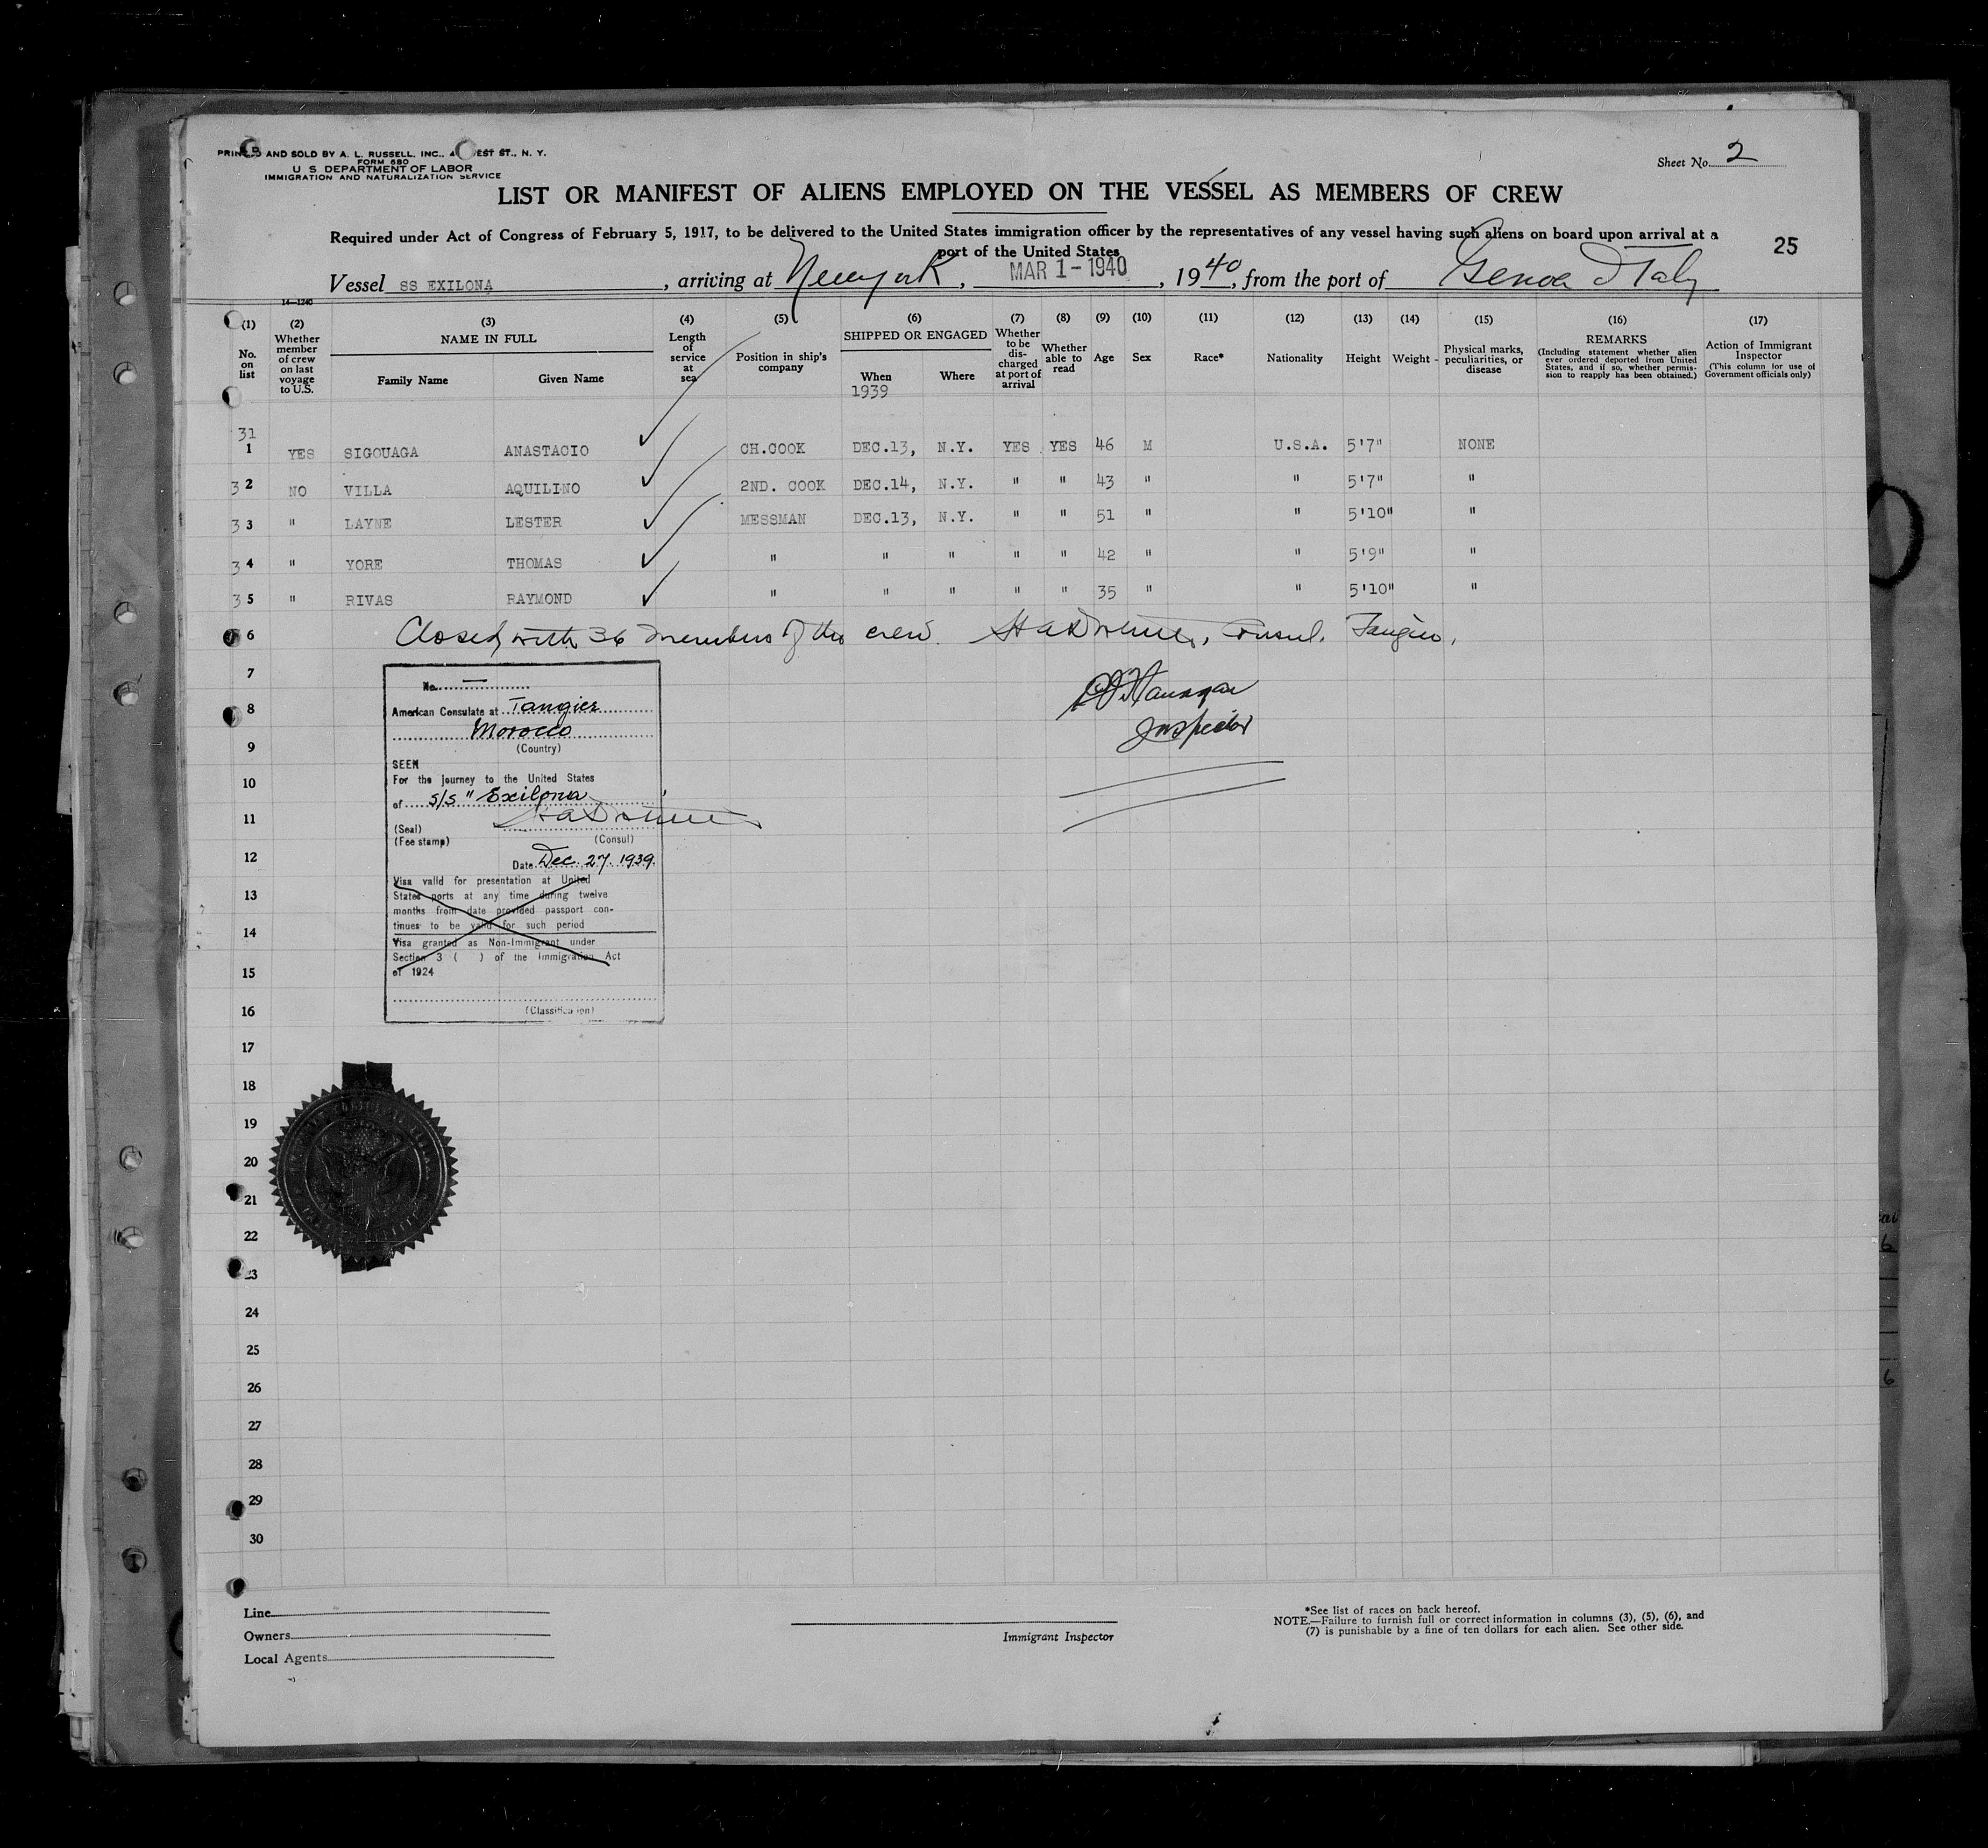 PRINTED AND SOLD BY A. L. RUSSELL, INC., EST ST., N. Y.
FORM 680
U. S. DEPARTMENT OF LABOR
IMMIGRATION AND NATURALIZATION SERVICE
Sheet No. 2
LIST OR MANIFEST OF ALIENS EMPLOYED ON THE VESSEL AS MEMBERS OF CREW
Required under Act of Congress of February 5, 1917, to be delivered to the United States immigration officer by the representatives of any vessel having such aliens on board upon arrival at a
port of the United States
25
Vessel SS EXILONA, arriving at New York, MAR 1-1940, 1940, from the port of Genoa Italy
14—1240
(1) (2) (3) (4) (5) (6) (7) (8) (9) (10) (11) (12) (13) (14) (15) (16) (17)
No. on list
Whether member of crew on last voyage to U.S.
NAME IN FULL
Family Name Given Name
Length of service at sea
Position in ship's company
SHIPPED OR ENGAGED
When Where
1939
Whether to be discharged at port of arrival
Whether able to read
Age
Sex
Race*
Nationality
Height
Weight
Physical marks, peculiarities, or disease
REMARKS
(Including statement whether alien ever ordered deported from United States, and if so, whether permission to reapply has been obtained.)
Action of Immigrant Inspector
(This column for use of Government officials only)
31
1 YES SIGOUAGA ANASTACIO CH.COOK DEC.13, N.Y. YES YES 46 M U.S.A. 5'7" NONE
3 2 NO VILLA AQUILINO 2ND. COOK DEC.14, N.Y. " " 43 " " 5'7" "
3 3 " LAYNE LESTER MESSMAN DEC.13, N.Y. " " 51 " " 5'10" "
3 4 " YORE THOMAS " " " " " 42 " " 5'9" "
3 5 " RIVAS RAYMOND " " " " " 35 " " 5'10" "
6 Closed with 36 members of the crew. Consul, Tangier.
7
8
9
10
11
12
13
14
15
16
17
18
19
20
21
22
23
24
25
26
27
28
29
30
No. —
American Consulate at Tangier
Morocco
(Country)
SEEN
For the journey to the United States
of S/S "Exilona
(Seal)
(Fee stamp) (Consul)
Date Dec. 27. 1939.
Visa valid for presentation at United
States ports at any time during twelve
months from date provided passport con-
tinues to be valid for such period
Visa granted as Non-Immigrant under
Section 3 ( ) of the Immigration Act
of 1924
(Classification)
Inspector
Line
Owners
Local Agents
Immigrant Inspector
*See list of races on back hereof.
NOTE.—Failure to furnish full or correct information in columns (3), (5), (6), and
(7) is punishable by a fine of ten dollars for each alien. See other side.